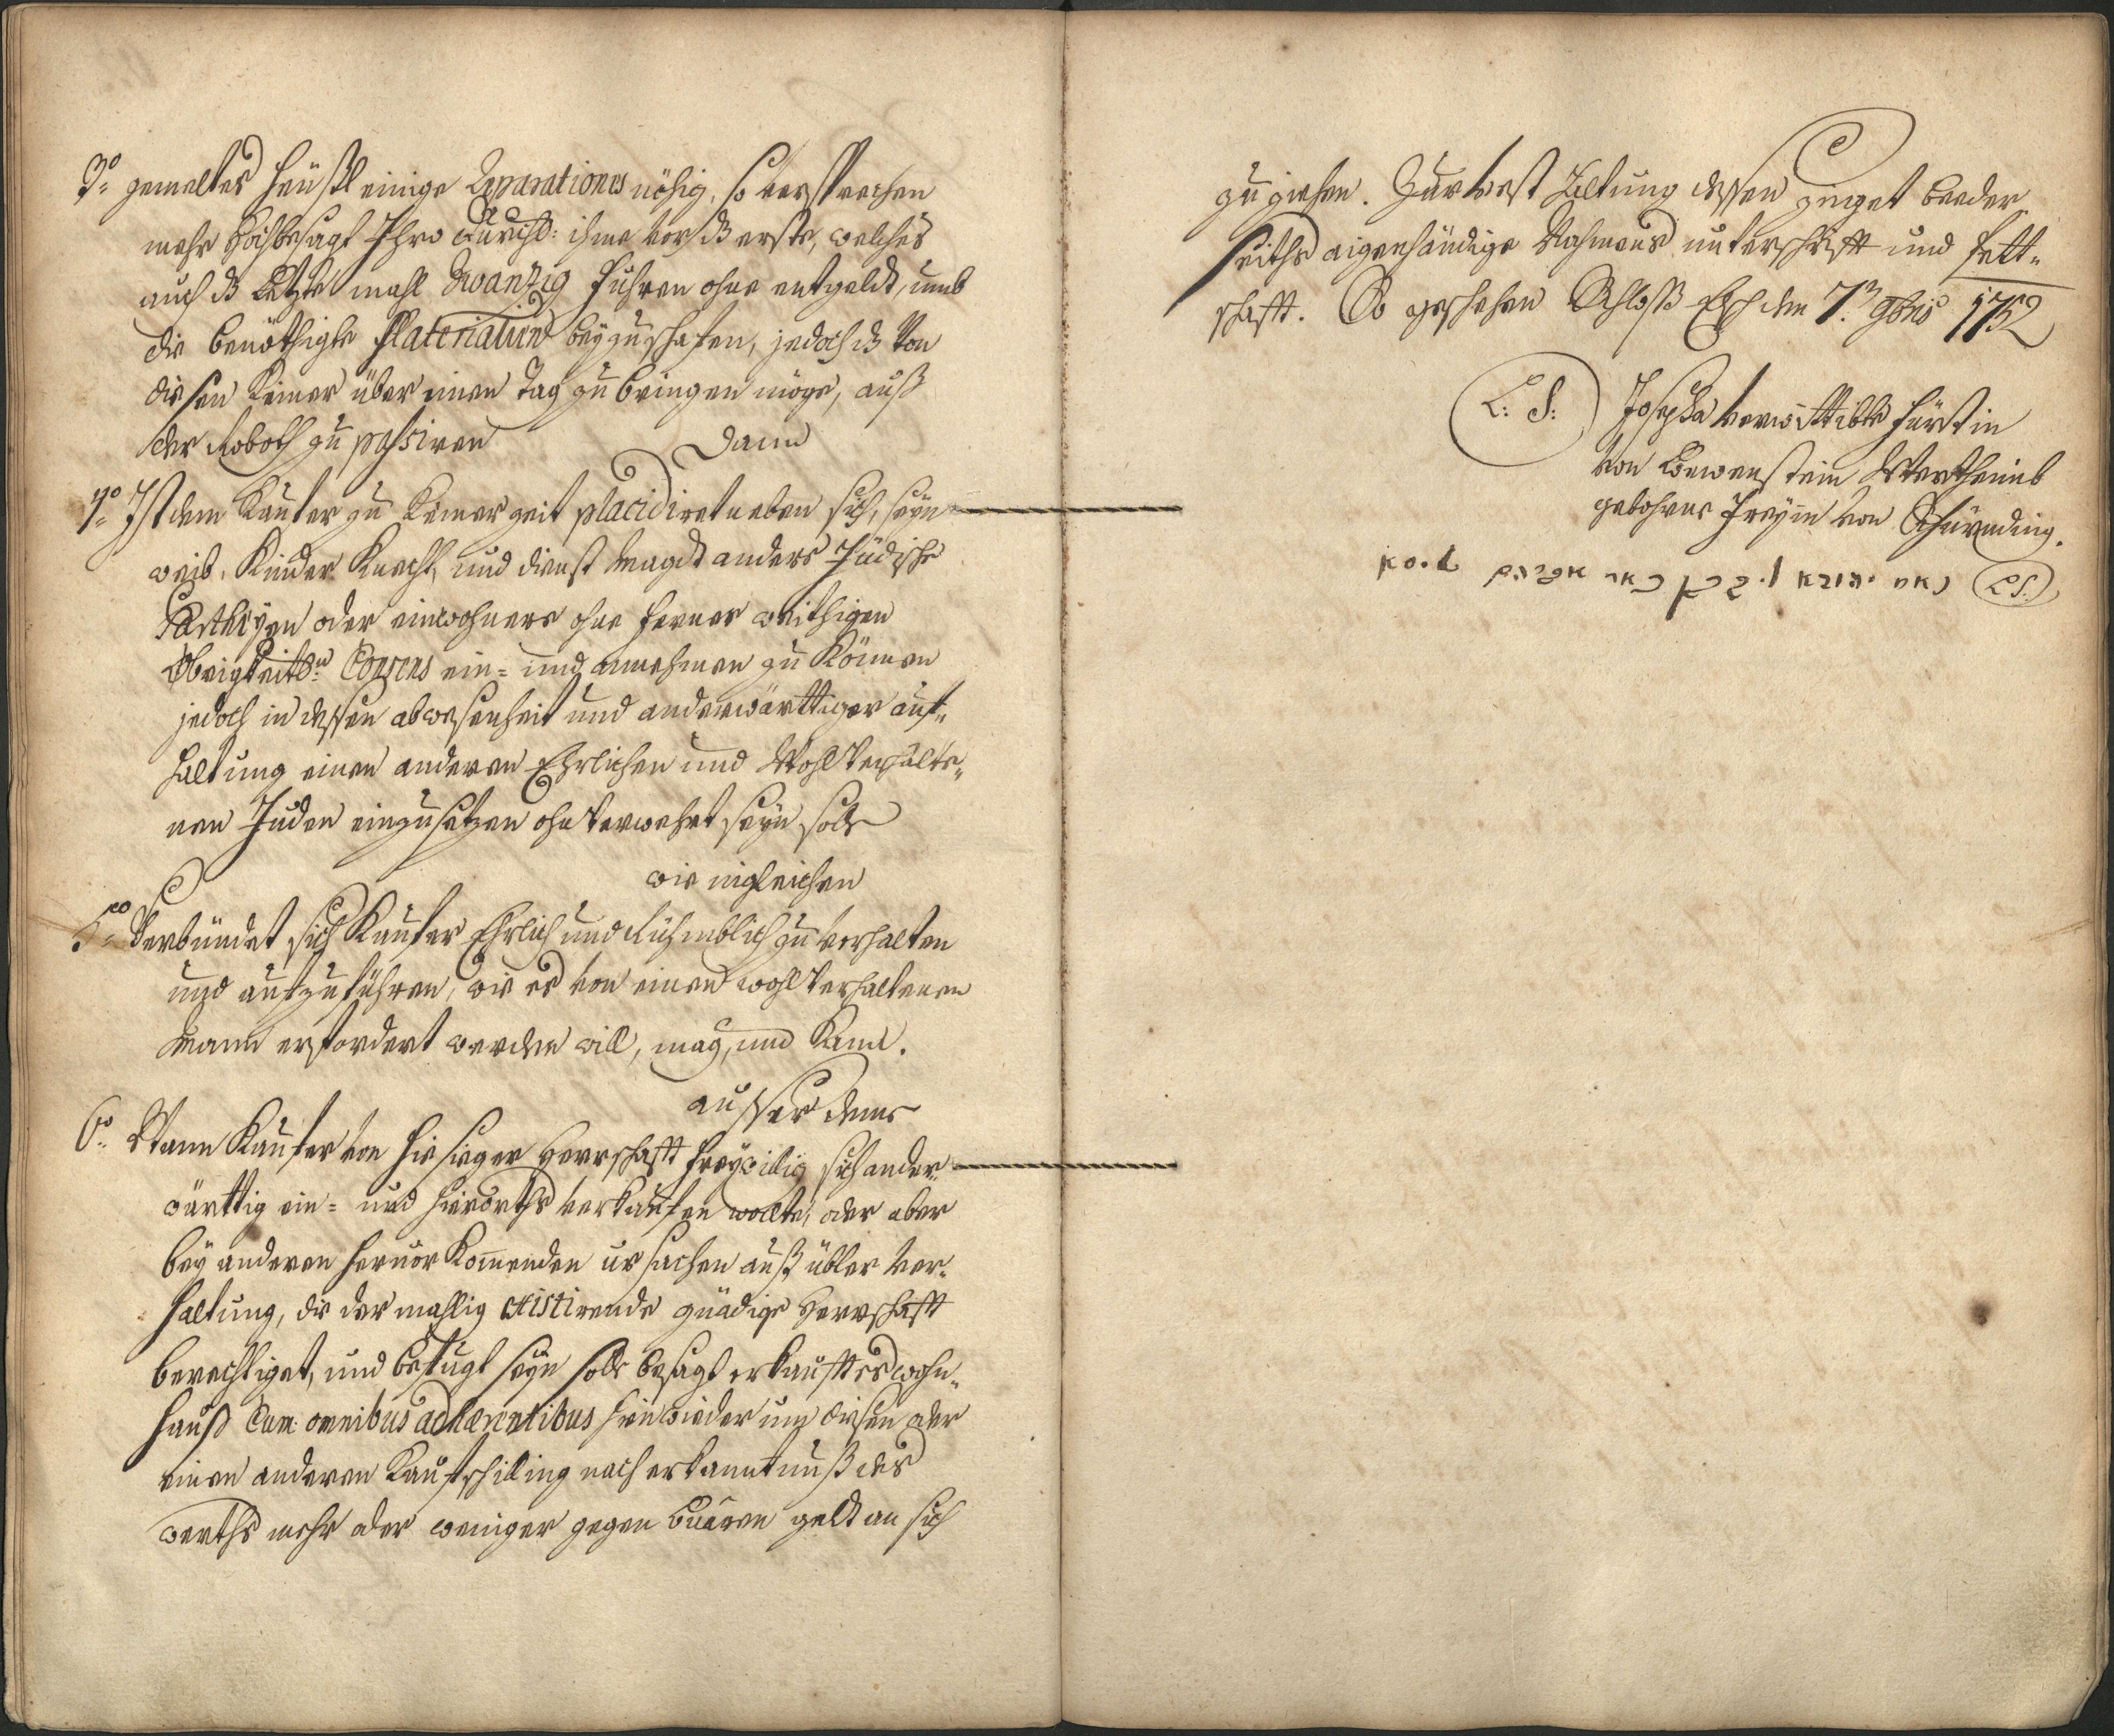 3º gemeltes Heüßl einige Reparationes nöhig, so versprechen
mehr Hochbesagt Ihro Durchl: ihme vor ds erste, welches
auch ds Letzte mahl Zwantzig Fuhren ohne entgeldt, umb
die benöthigte Materialien beyzuschafen, jedoch ds Von
diesen Keiner über einen Tag zu bringen möge, auß
der Roboth zu passiren
Dann
4º Ist dem Käufer zu Keiner zeit placidiret neben sich, seyn
weib, Kinder Knecht, und dienst Magdt anders Jüdische
Partheyen oder einwohners ohne ferner weithigen
Obrigkeitln Consens ein= und annehmen zu Können
jedoch in dessen abwesenheit und anderwärttiger auf=
haltung einen anderen Ehrlichen und Wohl Verhalte=
nen Juden einzusetzen ohnverwehrt seyn solle
wie ingleichen
5to Verbündet sich Kaufer Ehrlich und Rühmblich zu verhalten
und aufzuführen, wie es von einen wohl Verhaltenen
Mann erfordert werden will, mag, und Kann.
ausser deme
6to Wann Kaufer von hiesieger Herrschafft freywillig sich ander=
wärttig ein= und hierorths verkaufen wollte, oder aber
bey anderen hervor Komenden ursachen auß übler Ver=
haltung, die der mahlig existirende gnädige Herrschafft
berechtiget, und befugt seyn solle besagt erkaufftes wohn=
hauß Cum omnibus adhærentibus hinwieder umb diesen oder
einen anderen Kaufschilling nach erkanntnuß des
werths mehr oder weniger gegen Baaren geldt an sich
zu ziehen. Zur vest Haltung dessen zeiget beeder
seiths aigenhändige Nahmens unterschrifft und Pett=
schafft. So geschehen Schloß den 7. 9bris 1752
L: S: Josepha verwittibte Fürstin
von Löwenstein Wertheimb
gebohrne Freyin von
L S: